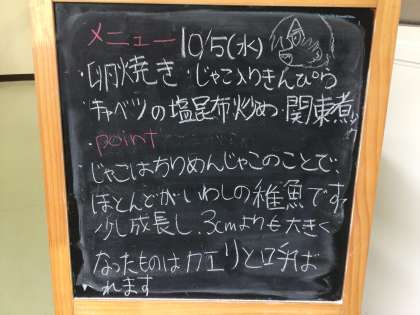 メニュー 10/5(水)
・卵焼き・じゃこ入りきんぴら
キャベツの塩昆布炒め・関東煮
・point
じゃこはちりめんじゃこのことで、
ほとんどがいわしの稚魚です
少し成長し、3cmよりも大きく
なったものはカエリと呼ば
れます